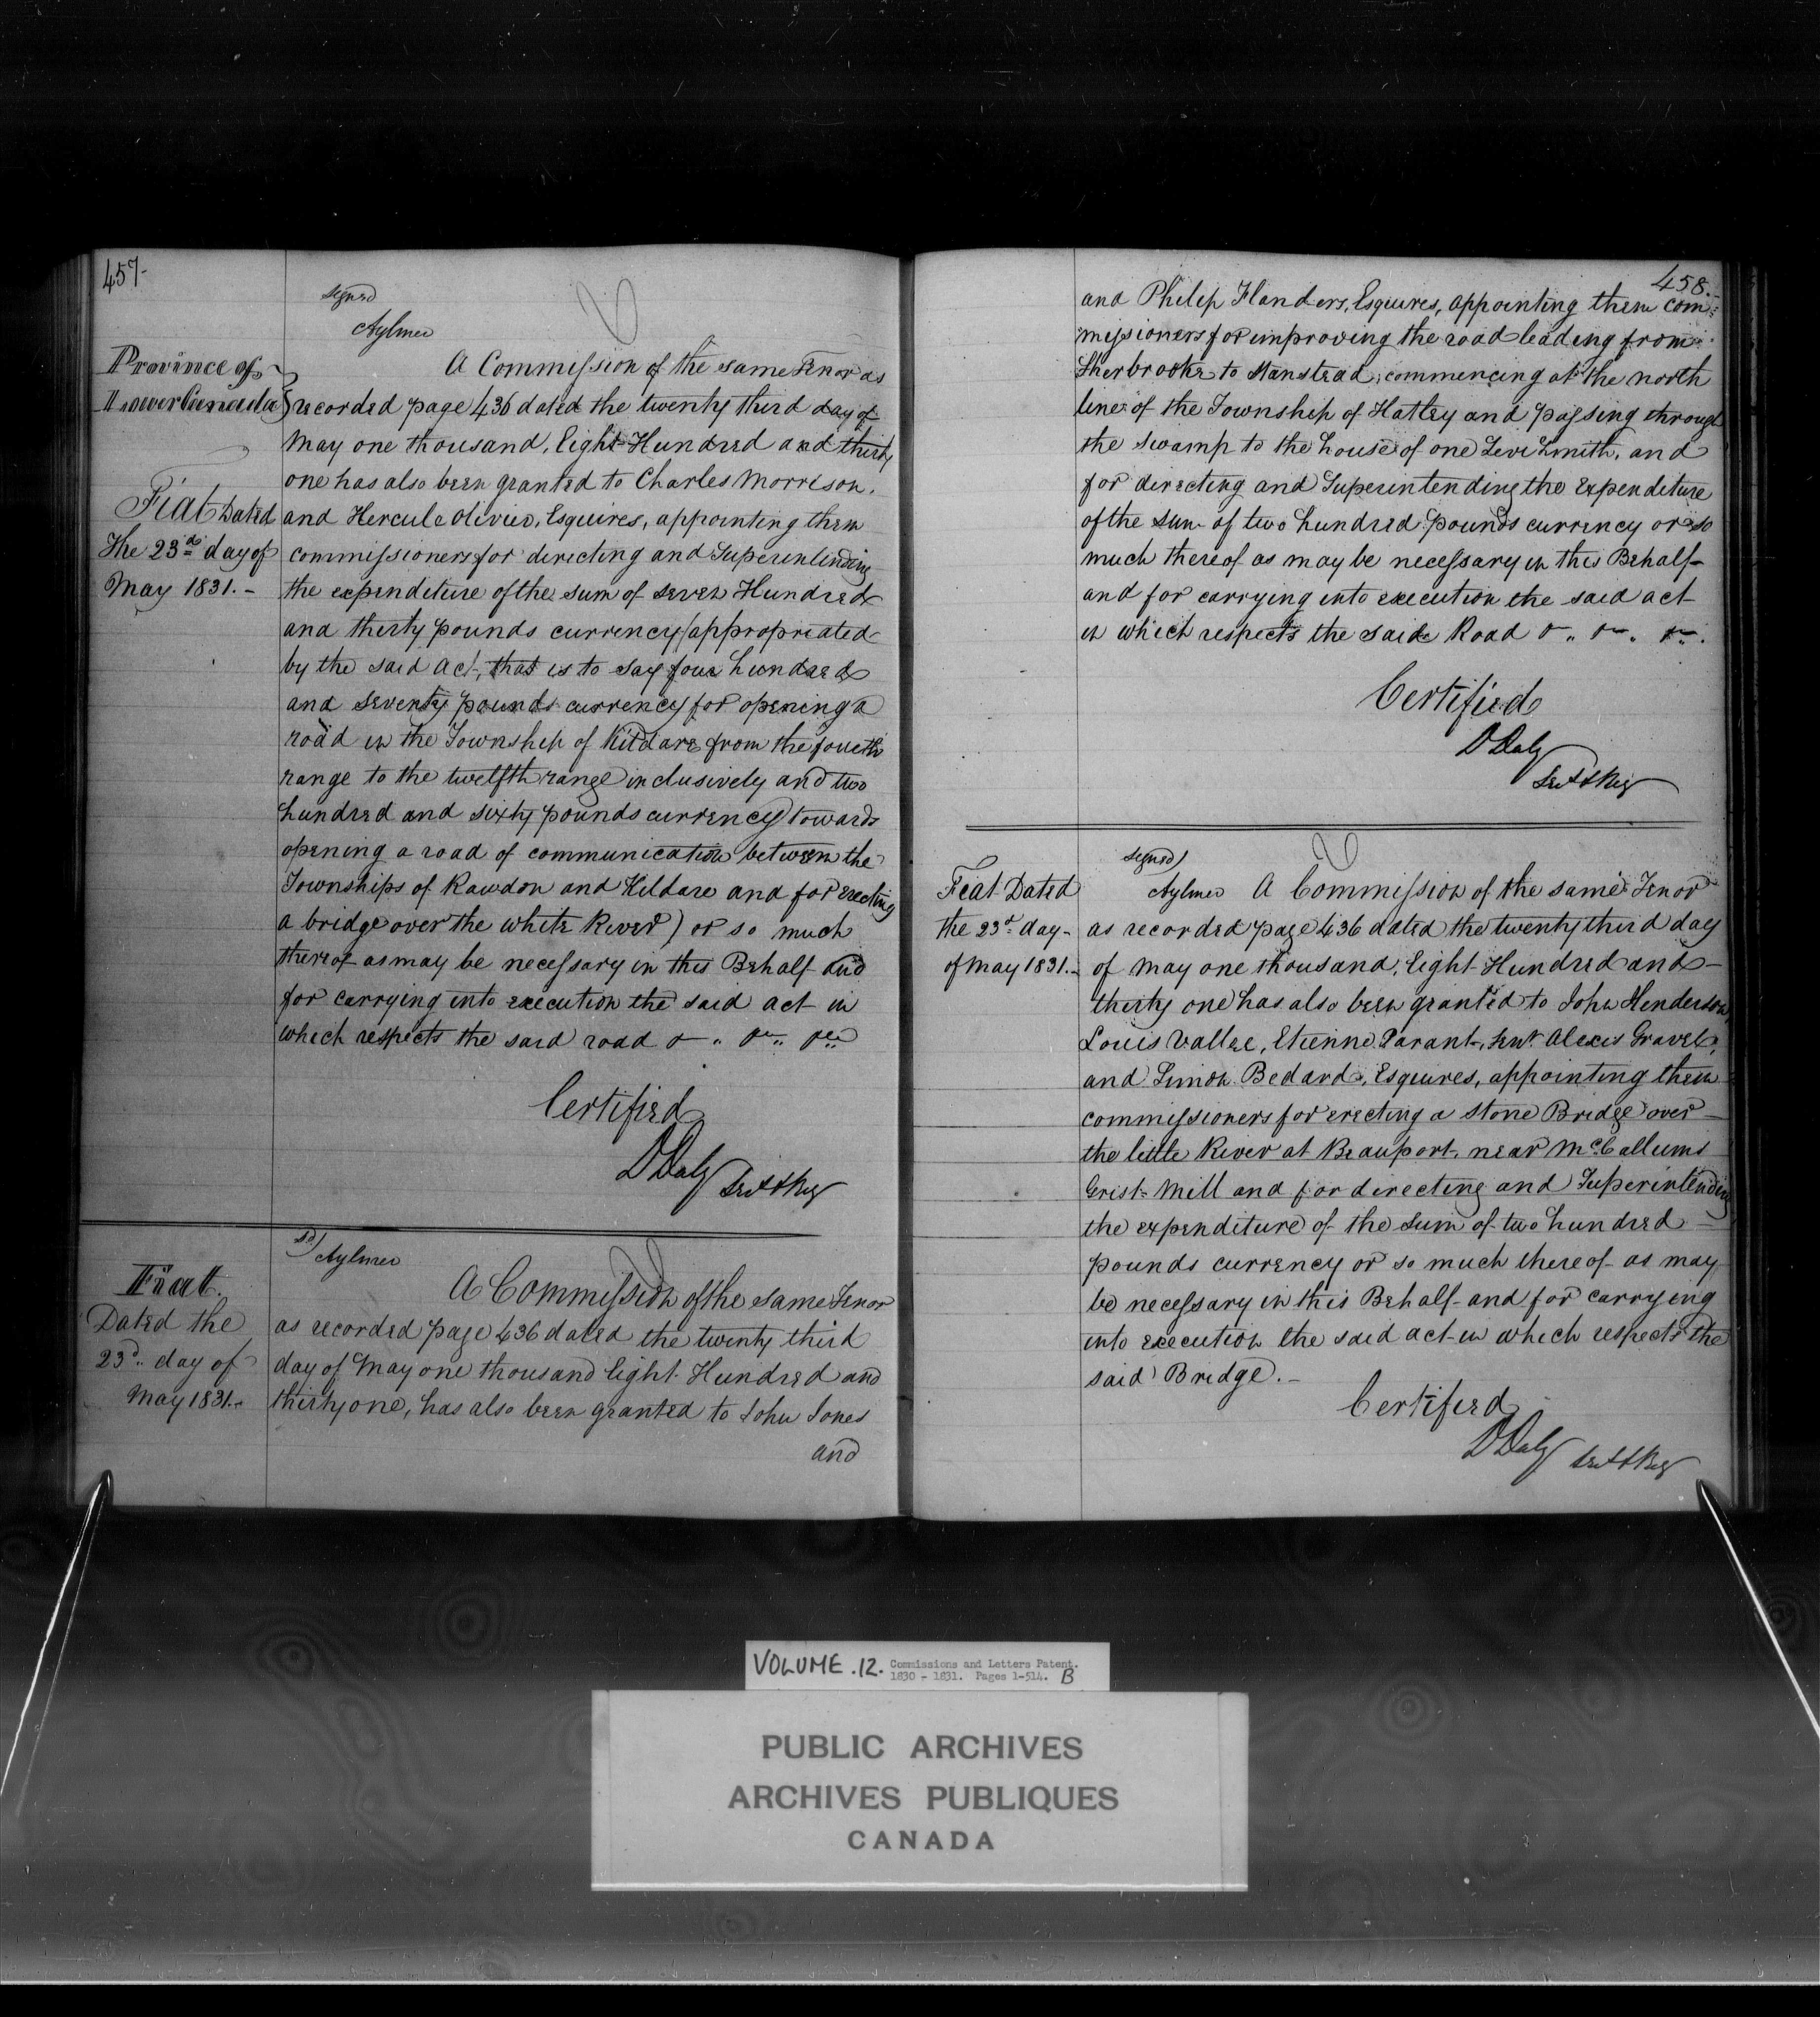 457-
signed
Aylmer
Province of
Lower Canada
Fiat Dated
The 23d. day of
May 1831.-
A Commission of the same Tenor as
recorded page 436 dated the twenty third day of
May one thousand, Eight Hundred and thirty
one has also been granted to Charles Morrison,
and Hercule Olivier, Esquires, appointing them
commissioners for directing and Superintending
the expenditure of the sum of seven Hundred
and thirty pounds currency (appropriated
by the said act, that is to say four hundred
and seventy pounds currency for opening a
road in the Township of Kildare from the fourth
range to the twelfth range inclusively and two
hundred and sixty pounds currency towards
opening a road of communication between the
Townships of Rawdon and Kildare and for erecting
a bridge over the white River) or so much
thereof as may be necessary in this Behalf and
for carrying into execution the said act in
which respects the said road
Certified
D Daly Sec & Reg
Fiat.
Dated the
23d. day of
May 1831.-
sd/
Aylmer
A Commission of the same Tenor
as recorded page 436 dated the twenty third
day of May one thousand Eight Hundred and
thirty one, has also been granted to John Jones
and
458.
and Philip Flanders, Esquires, appointing them com-
missioners for improving the road leading from
Sherbrooke to Stanstead, commencing at the north
line of the Township of Hatley and passing through
the swamp to the house of one Levi Smith, and
for directing and Superintending the Expenditure
of the sum of two hundred pounds currency or so
much thereof as may be necessary in this Behalf
and for carrying into execution the said act
in which respects the said Road
Certified
D Daly
Sec & Reg
Fiat Dated
the 23d. day-
of May 1831.-
signed/
Aylmer A Commission of the same Tenor
as recorded page 436 dated the twenty third day
of May one thousand, Eight Hundred and
thirty one has also been granted to John Henderson,
Louis Vallee, Etienne Parant, Senr. Alexis Gravel,
and Simon Bedard, Esquires, appointing them
commissioners for erecting a stone Bridge over
the little River at Beauport, near McCallums
Grist-Mill and for directing and Superintending
the expenditure of the Sum of two hundred
pounds currency or so much thereof as may
be necessary in this Behalf and for carrying
into execution the said act in which respects the
said Bridge.-
Certified
D Daly Sec & Reg
VOLUME .12. Commissions and Letters Patent.
1830 - 1831. Pages 1-514. B
PUBLIC ARCHIVES
ARCHIVES PUBLIQUES
CANADA